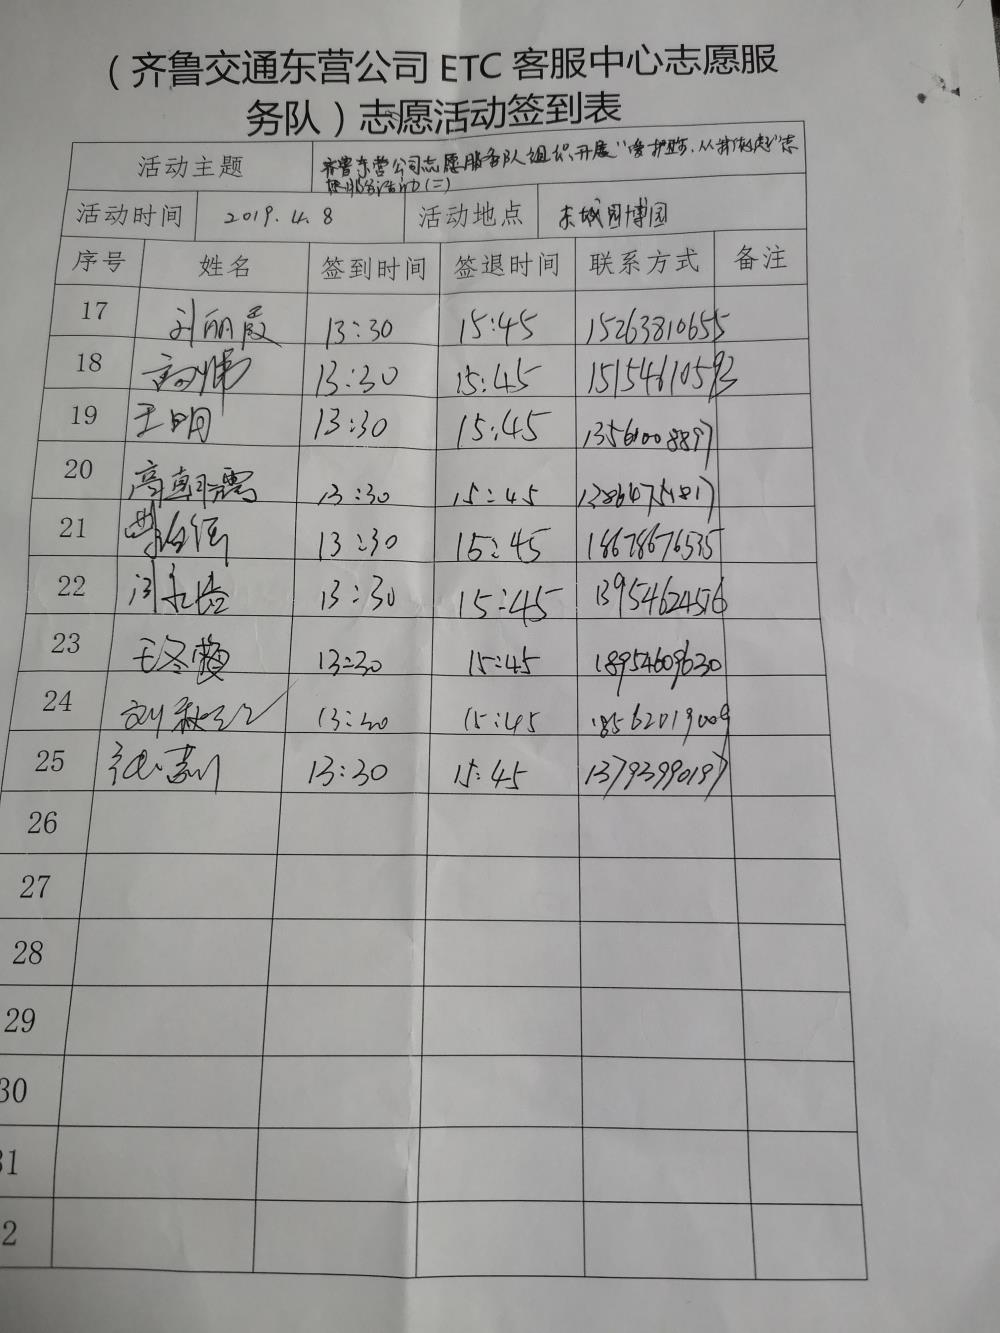 （齐鲁交通东营公司 ETC 客服中心志愿服
务队）志愿活动签到表
活动主题 齐鲁东营公司志愿服务队组织开展“爱护 从我做起”志
愿服务活动(二)
活动时间 2019.4.8 活动地点 东城园博园
序号 姓名 签到时间 签退时间 联系方式 备注
17 刘丽霞 13:30 15:45 15263810655
18 高伟 13:30 15:45 15154610593
19 王明 13:30 15:45 13561008897
20 高朝霞 13:30 15:45
21 13:30 15:45 18678676535
22 13:30 15:45 13954624576
23 王冬梅 13:30 15:45 18954609630
24 刘秋 13:30 15:45 18562019009
25 13:30 15:45 13793990197
26
27
28
29
30
31
2